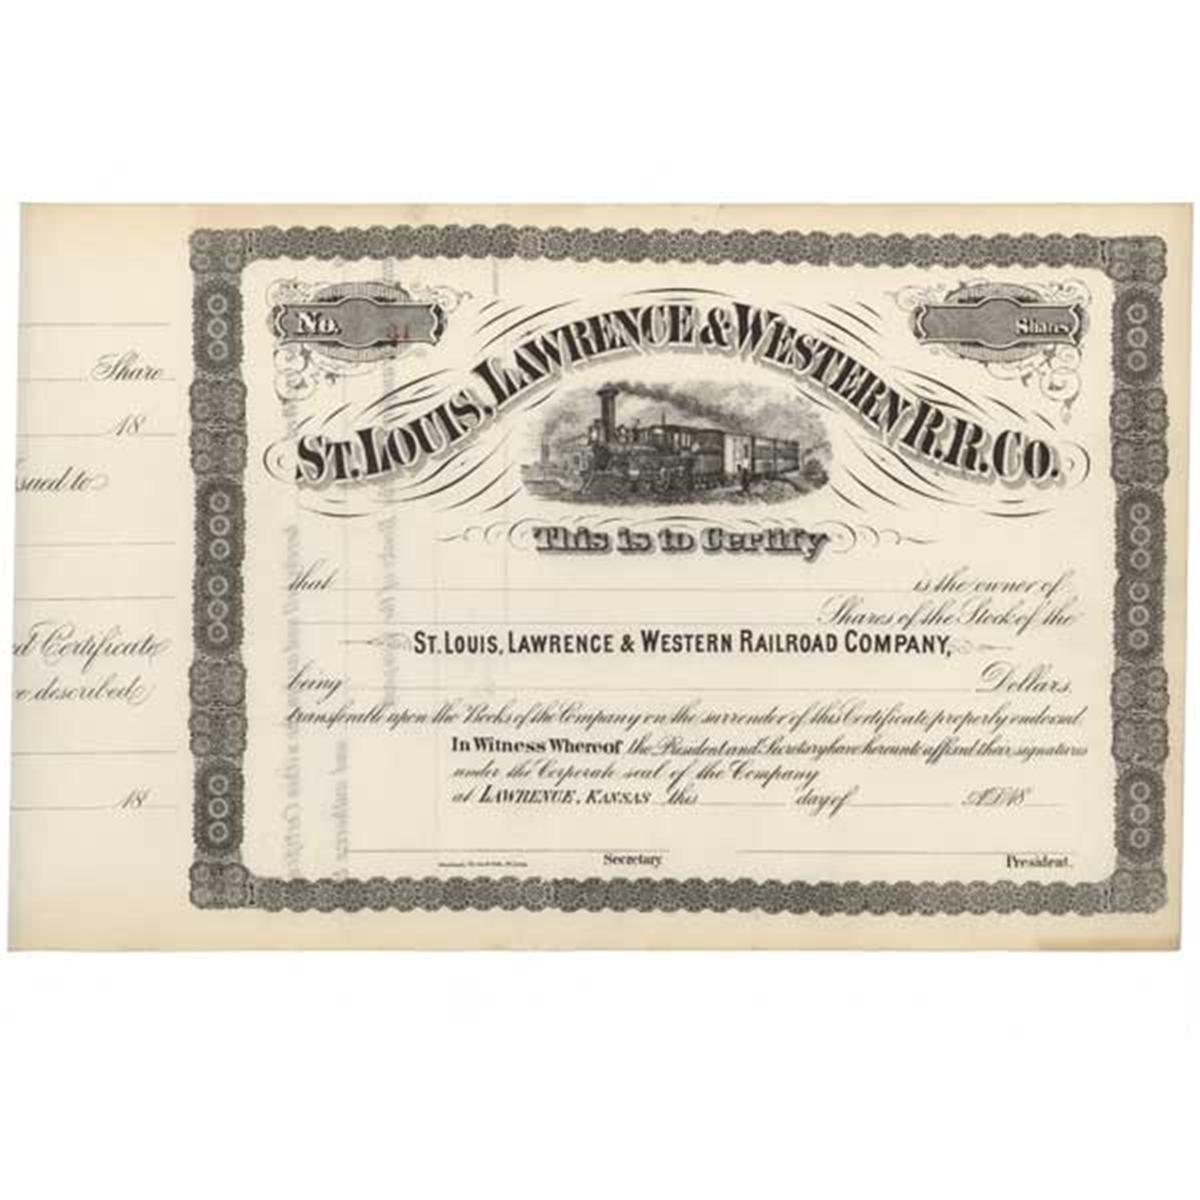 Share
18
sued to
d Certificate
e described
18
No. 31
Shares
ST. LOUIS, LAWRENCE & WESTERN R.R. CO.
This is to Certify
that is the owner of
Shares of the Stock of the
ST. LOUIS, LAWRENCE & WESTERN RAILROAD COMPANY,
being Dollars
transferable upon the Books of the Company on the surrender of this Certificate properly endorsed.
In Witness Whereof the President and Secretary have hereunto affixed their signatures
under the Corporate seal of the Company
at LAWRENCE, KANSAS this day of A.D. 18
Secretary
President.